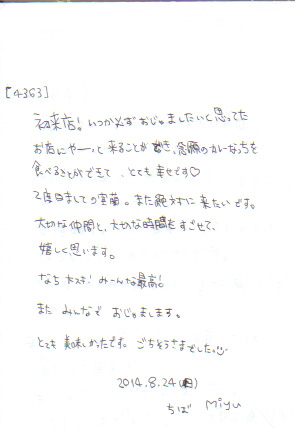 [4363]
初来店! いつか必ずおじゃましたいと思ってた
お店にやーっと来ることができ、念願のカレーなっちを
食べることができて、とても幸せです♡
2度目ましての室蘭。また絶対に来たいです。
大切な仲間と、大切な時間をすごせて、
嬉しく思います。
なち大スキ! みーんな最高!
また みんなで おじゃまします。
とても 美味しかったです。ごちそうさまでした
2014.8.24(日)
ちば Miyu